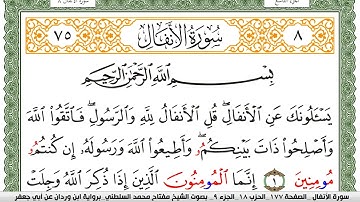 سورة الأنفال ٨
٧٥ سُورَةُ الأَنفَالِ ٨
بِسْمِ اللَّهِ الرَّحْمَٰنِ الرَّحِيمِ
يَسْـَٔلُونَكَ عَنِ الْأَنفَالِ ۖ قُلِ الْأَنفَالُ لِلَّهِ وَالرَّسُولِ ۖ فَاتَّقُوا اللَّهَ
وَأَصْلِحُوا ذَاتَ بَيْنِكُمْ ۖ وَأَطِيعُوا اللَّهَ وَرَسُولَهُ إِن كُنتُمُ
مُومِنِينَ ١ إِنَّمَا الْمُومِنُونَ الَّذِينَ إِذَا ذُكِرَ اللَّهُ وَجِلَتْ
سورة الأنفال الصفحة ١٧٧ الحزب ١٨ الجزء ٩ بصوت الشيخ مفتاح محمد السلطني برواية ابن وردان عن أبي جعفر